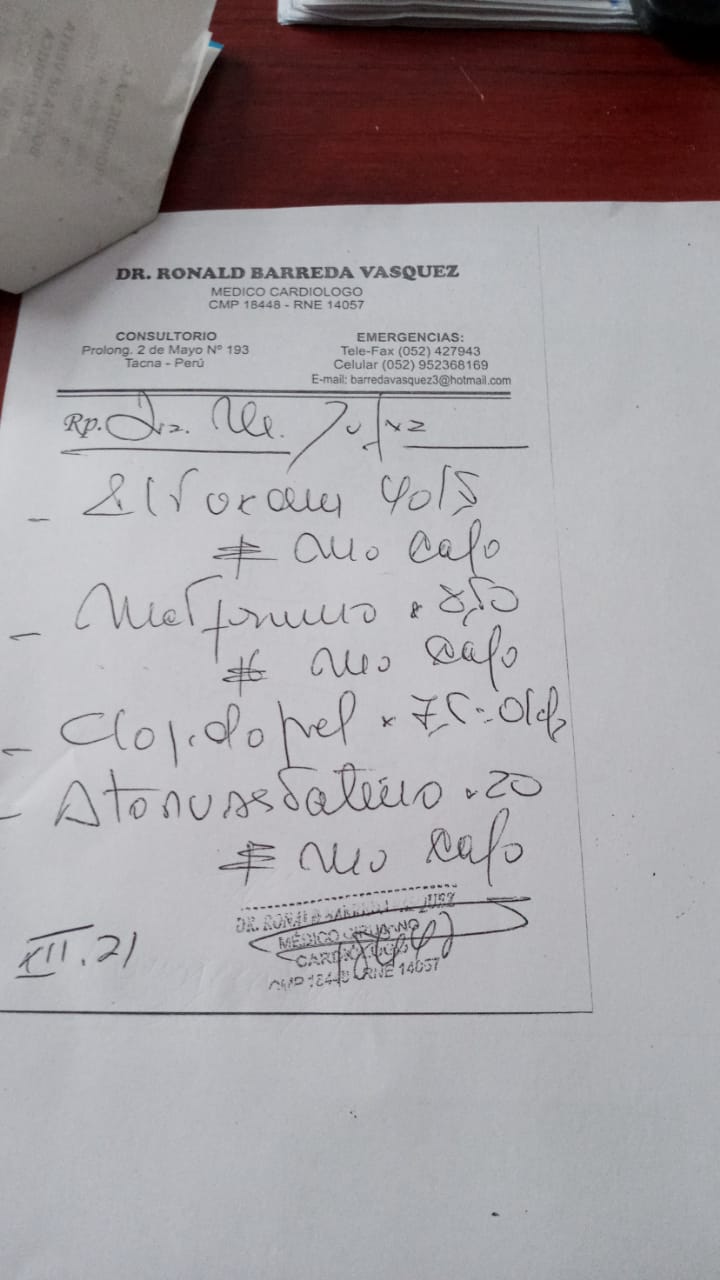 DR. RONALD BARREDA VASQUEZ
MEDICO CARDIOLOGO
CMP 18448 - RNE 14057
CONSULTORIO
Prolong. 2 de Mayo Nº 193
Tacna - Perú
EMERGENCIAS:
Tele-Fax (052) 427943
Celular (052) 952368169
E-mail: barredavasquez3@hotmail.com
Rp.
40/5
# uno caja
- Metformina x 850
# uno caja
- Clopidogrel x 75
- Atorvastatina x 20
# uno caja
XII.21
DR. RONALD BARREDA VASQUEZ
MÉDICO CIRUJANO
CARDIOLOGO
CMP 18448 - RNE 14057